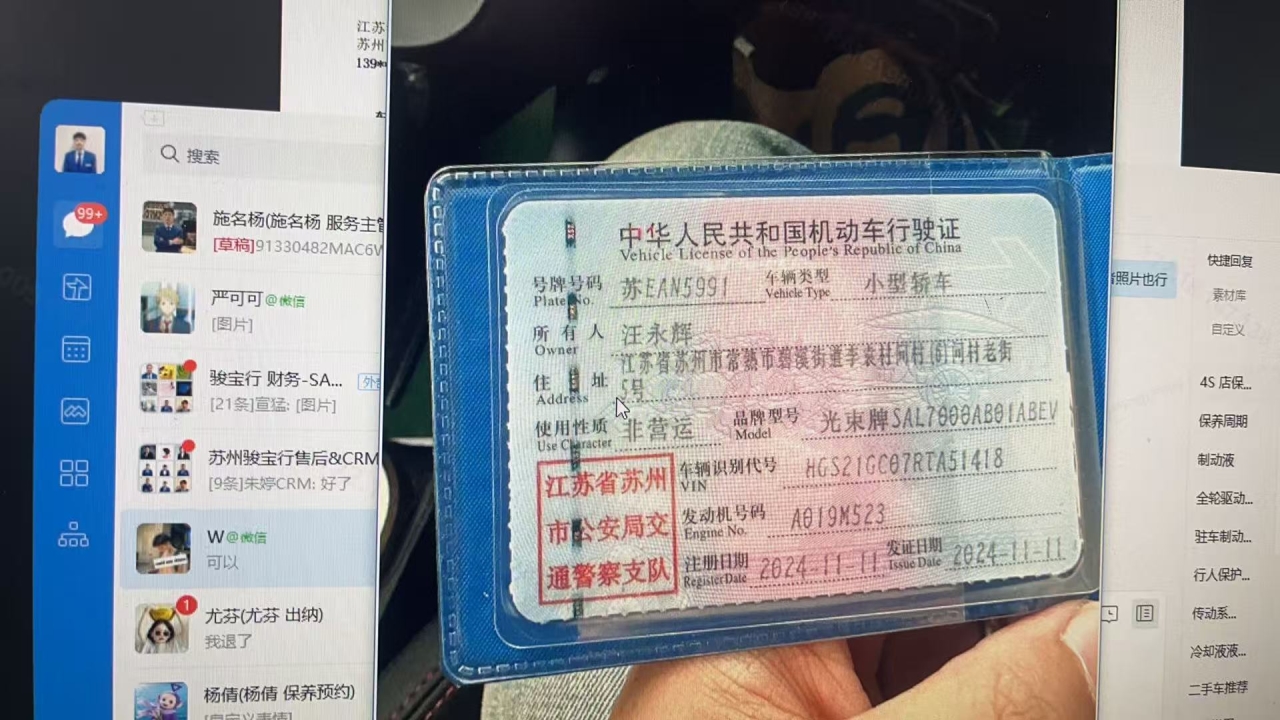 江苏
苏州
139**
99+
搜索
施名杨(施名杨 服务主管
[草稿]91330482MAC6W
严可可@微信
[图片]
骏宝行 财务-SA...
[21条]宣猛: [图片]
苏州骏宝行售后&CRM
[9条]朱婷CRM: 好了
W@微信
可以
1
尤芬(尤芬 出纳)
我退了
杨倩(杨倩 保养预约)
中华人民共和国机动车行驶证
Vehicle License of the People's Republic of China
号牌号码 苏EAN5991 车辆类型 小型轿车
Plate No. Vehicle Type
所有人 汪永辉
Owner
江苏省苏州市常熟市碧溪街道李袁村同村(6)问村老街
住址 5号
Address
使用性质 非营运 品牌型号 光束牌SAL7000AB01ABEV
Use Character Model
车辆识别代号 HGS21GC07RTA51418
VIN
发动机号码 A019M523
Engine No.
注册日期 2024-11-11 发证日期 2024-11-11
Register Date Issue Date
江苏省苏州
市公安局交
通警察支队
照片也行
快捷回复
素材库
自定义
4S 店保...
保养周期
制动液
全轮驱动...
驻车制动...
行人保护...
传动系...
冷却液液...
二手车推荐